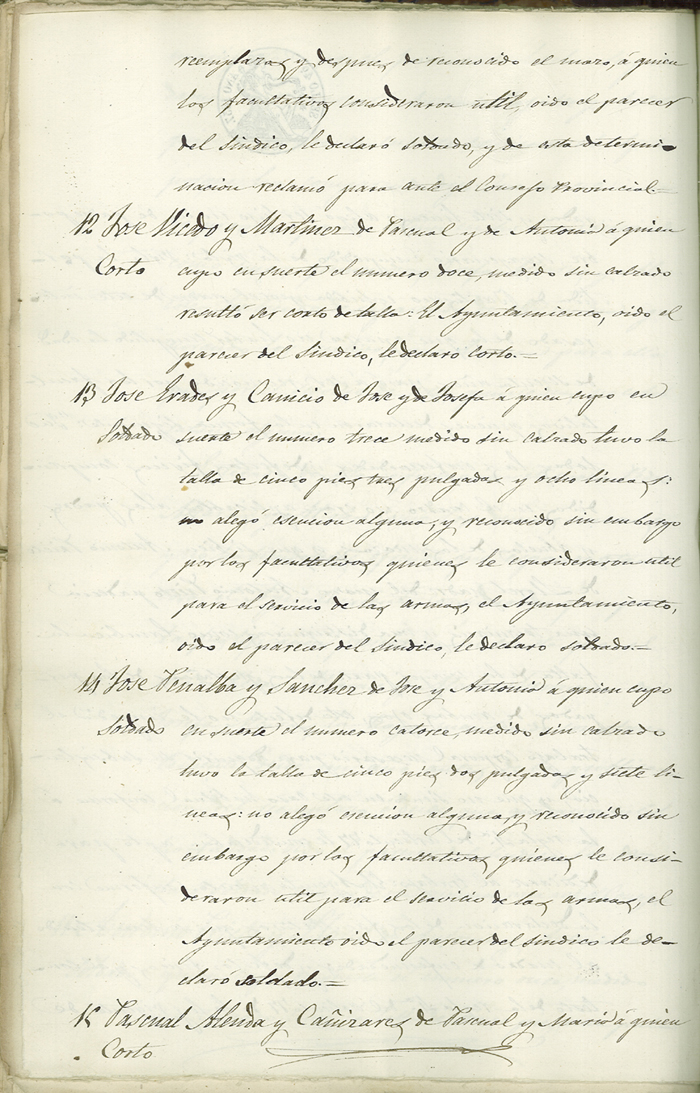 reemplazos y despues de reconocido el mozo, á quien
los facultativos consideraron util, oido el parecer
del Sindico, le declaró soldado, y de esta determi-
nacion reclamó para ante el Consejo Provincial.=
12 Jose Vicedo y Martinez de Pascual y de Antonia á quien
Corto cupo en suerte el numero doce, medido sin calzado
resultó ser corto de talla: El Ayuntamiento, oido el
parecer del Sindico, le declaro Corto.=
13 Jose Erades y Canicio de Jose y de Josefa á quien cupo en
Soldado suerte el numero trece medido sin calzado tuvo la
talla de cinco pies tres pulgadas y ocho lineas:
no alegó esencion alguna, y reconocido sin embargo
por los facultativos quienes le consideraron util
para el servicio de las armas, el Ayuntamiento,
oido el parecer del Sindico, le declaro soldado.=
14 Jose Penalba y Sanchez de Jose y Antonia á quien cupo
Soldado en suerte el numero catorce, medido sin calzado
tuvo la talla de cinco pies dos pulgadas y siete li-
neas: no alegó esencion alguna, y reconocido sin
embargo por los facultativos quienes le consi-
deraron util para el servicio de las armas, el
Ayuntamiento oido el parecer del Sindico le de-
claró soldado.=
15 Pascual Alenda y Cañizares de Pascual y Maria á quien
Corto